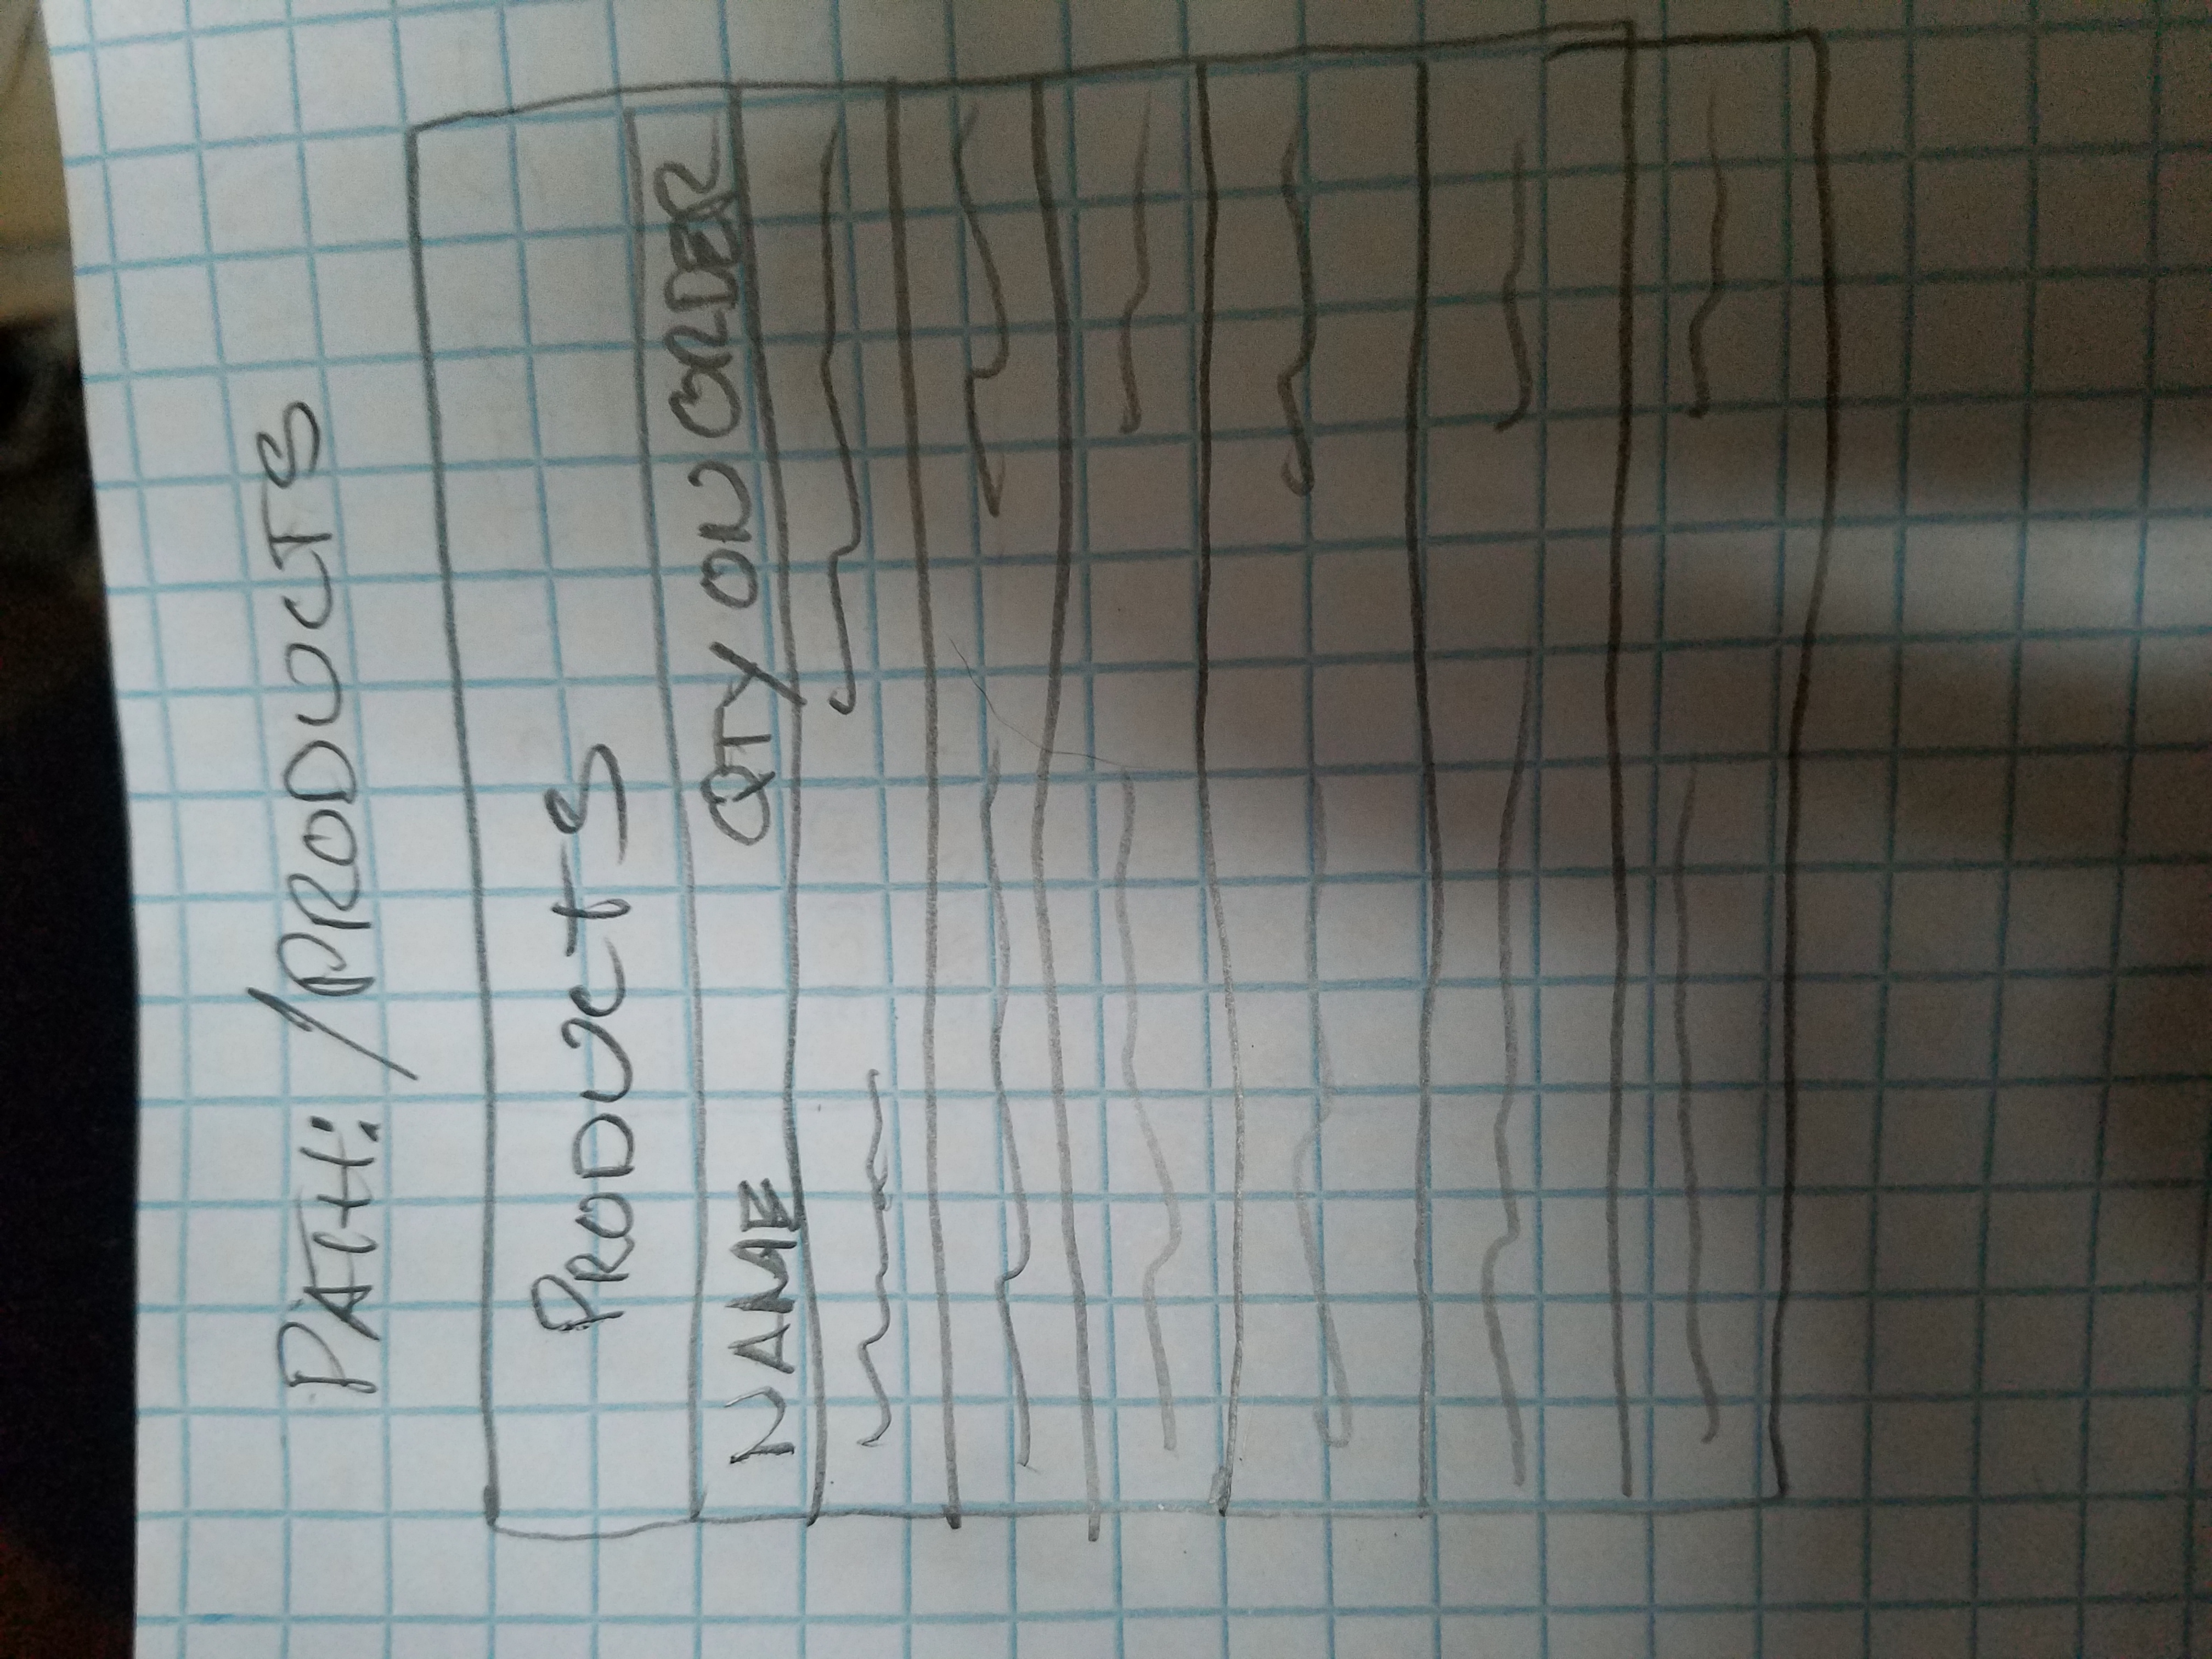 PATH: /PRODUCTS
PRODUCTS
NAME QTY ON ORDER